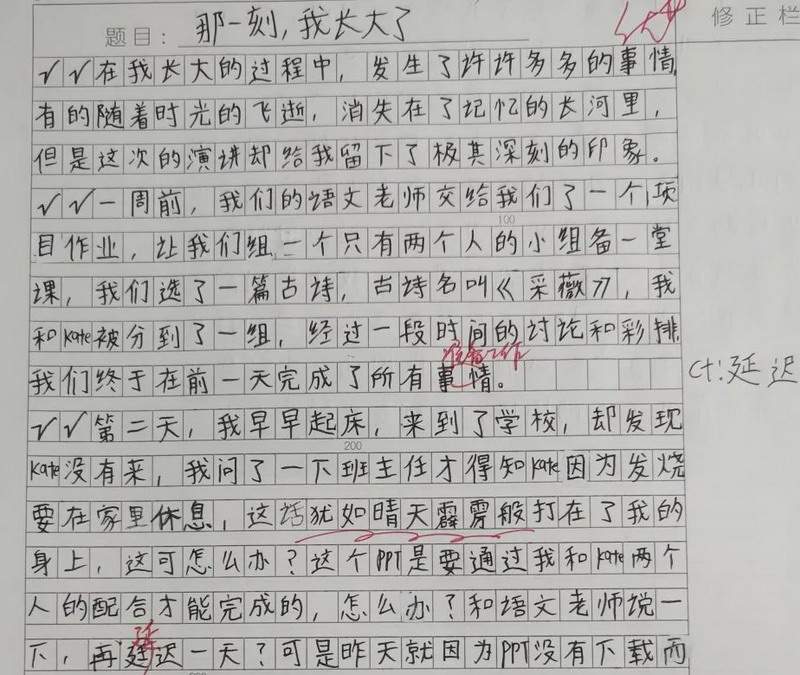 题目：那一刻，我长大了
修正栏
√√在我长大的过程中，发生了许许多多的事情，
有的随着时光的飞逝，消失在了记忆的长河里，
但是这次的演讲却给我留下了极其深刻的印象。
√√一周前，我们的语文老师交给我们了一个项
100
目作业，让我们组一个只有两个人的小组备一堂
课，我们选了一篇古诗，古诗名叫《采薇》，我
和Kate被分到了一组，经过一段时间的讨论和彩排
准备工作
我们终于在前一天完成了所有事情。
ct:延迟
√√第二天，我早早起床，来到了学校，却发现
200
Kate没有来，我问了一下班主任才得知Kate因为发烧
要在家里休息，这话犹如晴天霹雳般打在了我的
身上，这可怎么办？这个PPT是要通过我和Kate两个
人的配合才能完成的，怎么办？和语文老师说一
延
下，再迟一天？可是昨天就因为PPT没有下载而